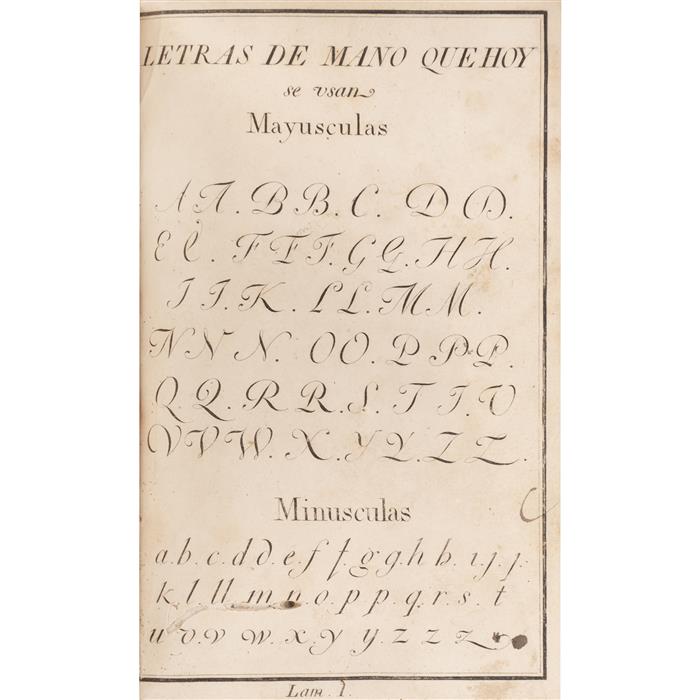 LETRAS DE MANO QUE HOY
se vsan
Mayusculas
A A. B B. C. D D.
E E. F F F. G G. H H.
I I. K. L L. M M.
N N N. O O. P P P.
Q. Q. R R. S. T T. V
V V W. X. Y Y. Z Z.
Minusculas
a. b. c. d d. e. f f. g g. h h. i j. j.
k l ll m n. o. p p. q. r. s. t
u v. v w. x. y y. z z z
Lam. 1.